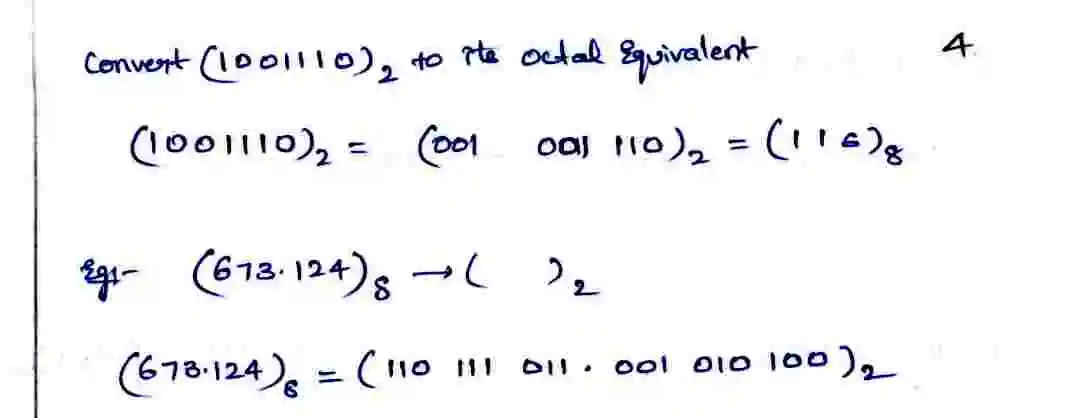 Convert (1001110)₂ to its octal Equivalent 4
(1001110)₂ = (001 001 110)₂ = (116)₈
Eg:- (673.124)₈ → ( )₂
(673.124)₈ = (110 111 011 . 001 010 100)₂